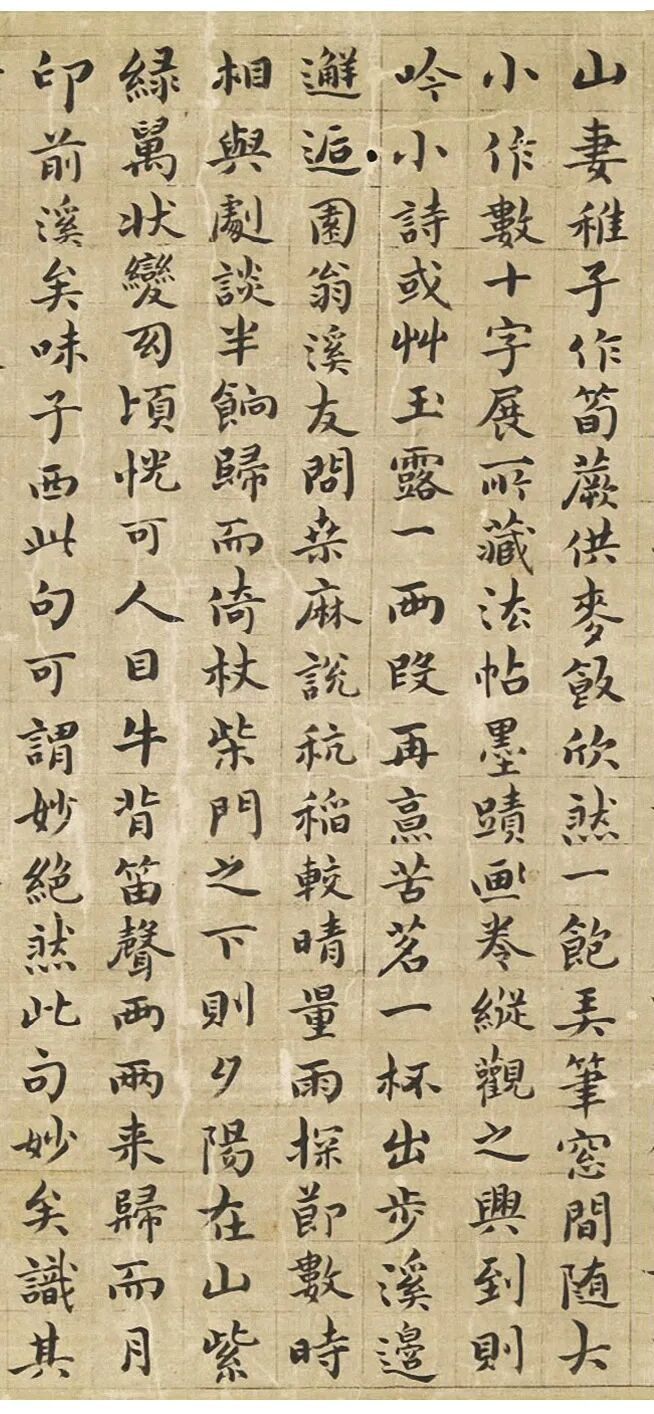 山妻稚子作筍蕨供麥飯欣然一飽弄筆窓間随大
小作數十字展所藏法帖墨蹟画卷縱觀之興到則
吟小詩或艸玉露一兩段再烹苦茗一杯出步溪邊
邂逅園翁溪友問桒麻說秔稻較晴量雨探節數時
相與劇談半餉歸而倚杖柴門之下則夕陽在山紫
緑萬状變幻頃恍可人目牛背笛聲兩兩来歸而月
印前溪矣味子西此句可謂妙絕然此句妙矣識其